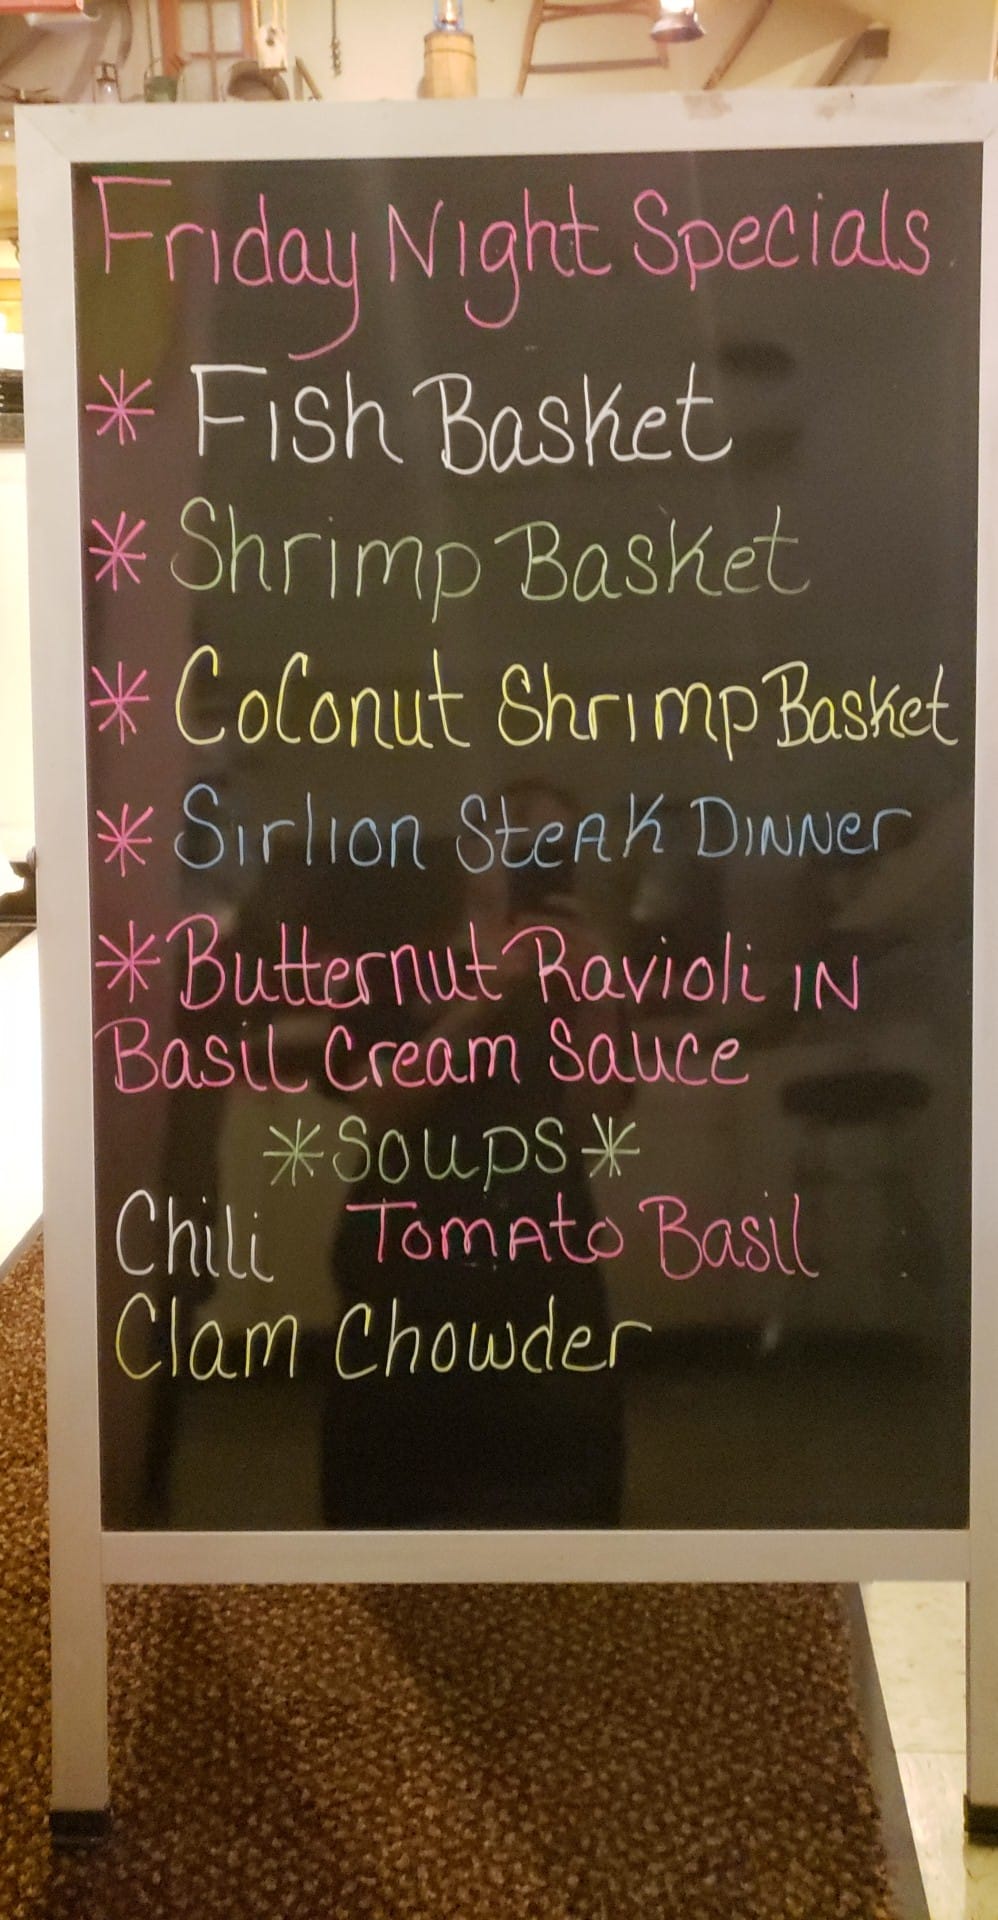 Friday Night Specials
* Fish Basket
* Shrimp Basket
* Coconut Shrimp Basket
* Sirlion Steak Dinner
* Butternut Ravioli in
Basil Cream Sauce
* Soups *
Chili Tomato Basil
Clam Chowder